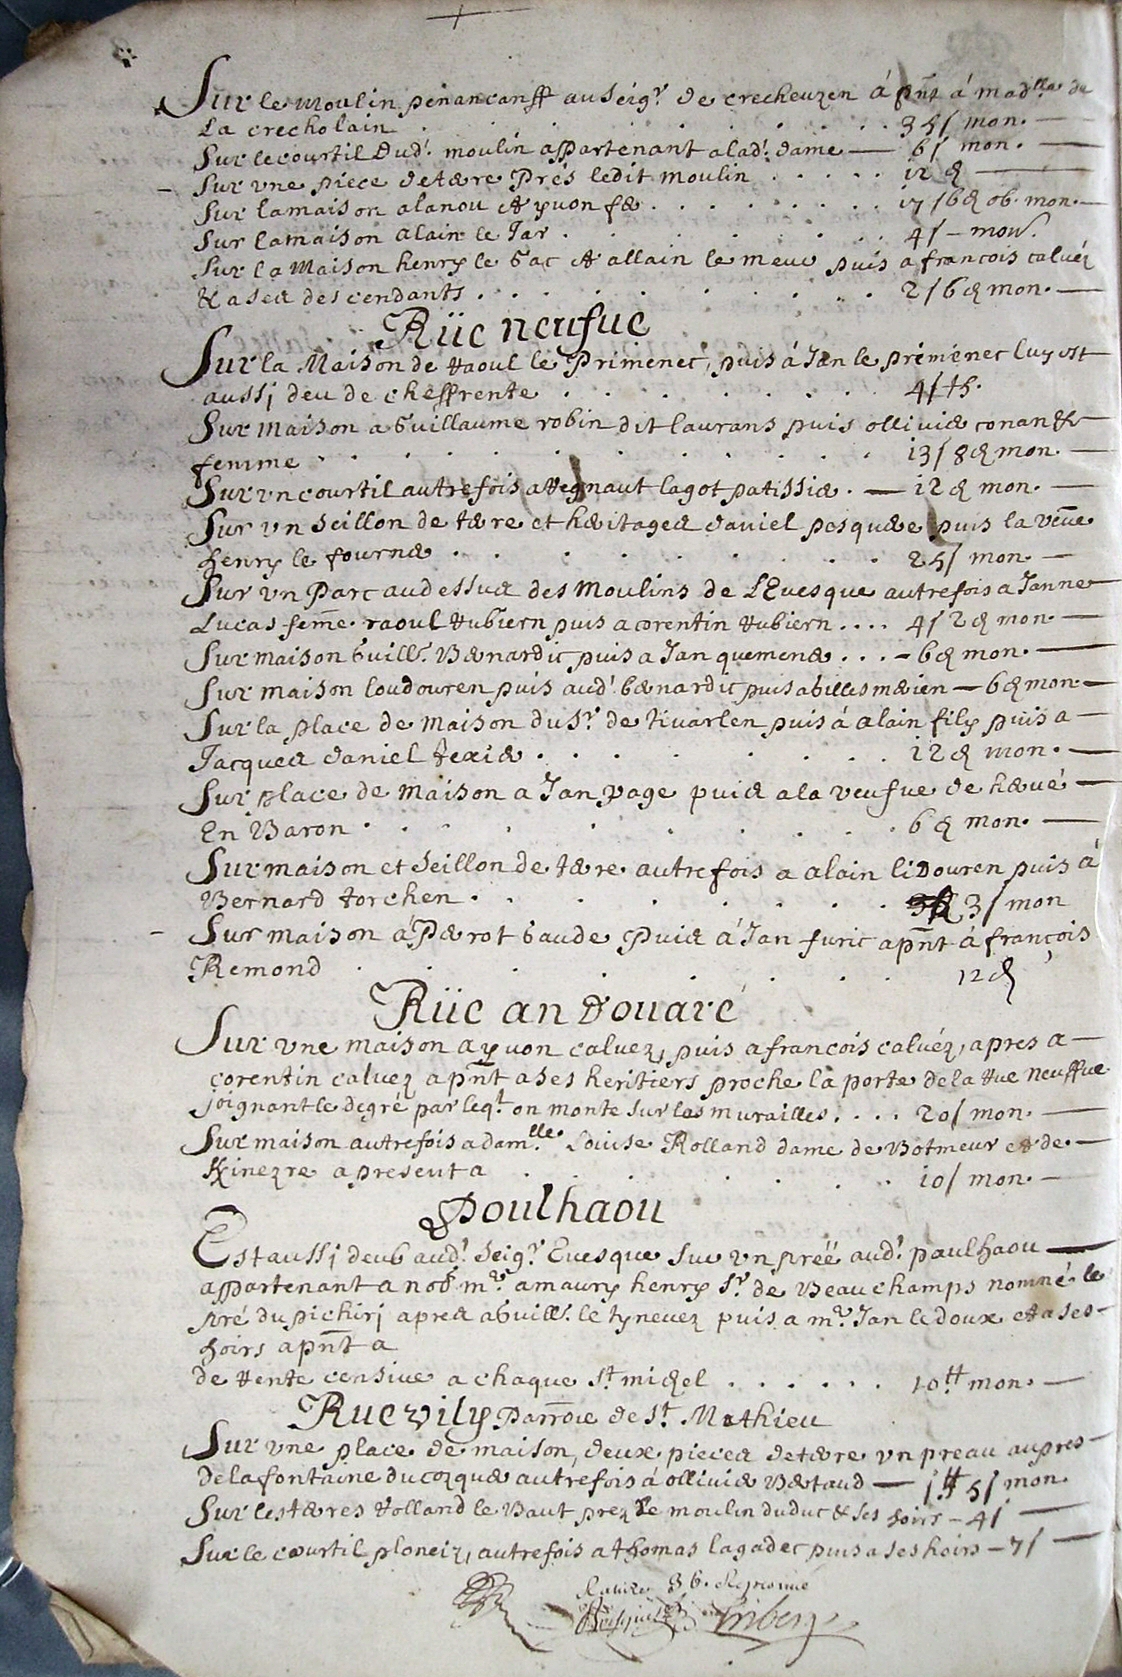 Sur le moulin penancanff au seigr de crecheuzen á pnt á madlle de
La crecholain . . . . . . . . . . 35 s mon. —
Sur le courtil dudt moulin appartenant a ladt dame — 6 s mon. —
– Sur vne piece de terre Prés ledit moulin . . . . . 12 d —
Sur la maison alanou & yuon fe . . . . . . . . 17 s 6 d ob. mon. —
Sur la maison alain le Tar . . . . . . . 4 s – mon.
Sur la Maison henry le Gac & allain le meur puis a francois caluéz
& a ses descendants . . . . . . . . . . 2 s 6 d mon. —
Rüe neufue
Sur la Maison de Raoul le Primenec, puis á Jan le prémenec luy est
aussj deu de cheffrente . . . . . . . 4 s
Sur maison a Guillaume robin dit laurans puis olliuier conan &
femme . . . . . . . . . . 13 s 8 d mon. —
Sur vn courtil autrefois a Regnaut lagot patissier . — 12 d mon. —
Sur vn seillon de terre et heritages daniel pesquer e puis la veuue
henry le fourner . . . . . . . . . 25 s mon. —
Sur vn Parc au dessus des Moulins de l'Euesque autrefois a Janne
Lucas feme. raoul Hubiern puis a corentin Hubiern . . . . 4 s 2 d mon. —
Sur maison Guill. Bernardic puis a Jan quemener . . . – 6 d mon. —
Sur maison loudouren puis audt bernardic puis a billes merien — 6 d mon. —
Sur la place de maison du Sr de tiuarlen puis á alain fily puis a —
Jacques daniel texier . . . . . . . . 12 d mon. —
Sur place de maison a Jan page puis a la veufue de herué —
En Baron . . . . . . . . . 6 d mon. —
Sur maison et seillon de terre autrefois a alain lidouren puis á
Bernard torchen . . . . . . . . . 3 s mon
– Sur maison á Perot Gaude Puis á Jan furic apnt á francois
Remond . . . . . . . . 12 d
Rüe an douaré
Sur vne maison a yuon caluez, puis a francois caluéz, apres a —
corentin caluez apnt a ses heritiers proche la porte de la rue neuffue
joignant le degré par leqt on monte sur les murailles . . . . 20 s mon. —
Sur maison autrefois a damlle Louise Rolland dame de Botmeur & de —
Kinezre a present a . . . . . . . 10 s mon. —
Poulhaou
Est aussj deub audt Seigr Euesque sur vn préé audt paulhaou —
appartenant a nob mr amaury henry sr de Beauchamps nommé le
pré du pichirj apres a Guill. le tyneuez puis a mr Jan le doux & a ses –
hoirs apnt a
de Rente censiue a chaque St michel . . . . . . 10 tt mon. —
Rue vily Parroe de St Mathieu
Sur vne place de maison, deux pieces de terre vn preau aupres –
de la fontaine du cozquer autrefois á olliuier Bertaud — 1 tt 5 s mon.
Sur les terres Rolland le Baut prez le moulin du duc & ses hoirs – 4 s —
Sur le courtil ploneiz, autrefois a thomas lagadec puis a ses hoirs – 7 s —